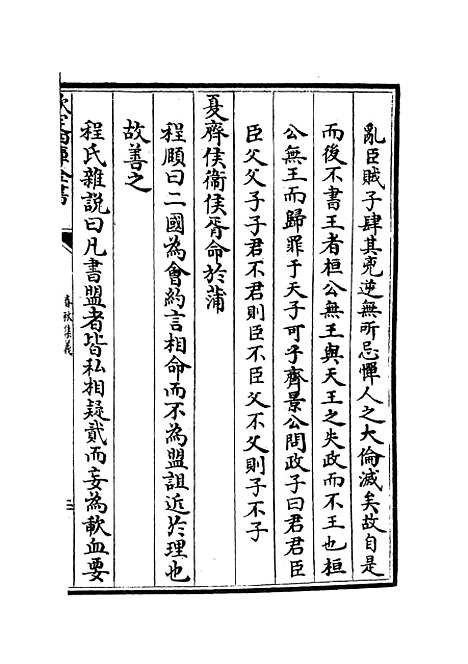 亂臣賊子肆其兇逆無所忌憚人之大倫滅矣故自是
而後不書王者桓公無王與天王之失政而不王也桓
公無王而歸罪于天子可乎齊景公問政子曰君君臣
臣父父子子君不君則臣不臣父不父則子不子
夏齊侯衞侯胥命於蒲
程頤曰二國為會約言相命而不為盟詛近於理也
故善之
程氏雜說曰凡書盟者皆私相疑貳而妄為歃血要
欽定四庫全書
春秋集義